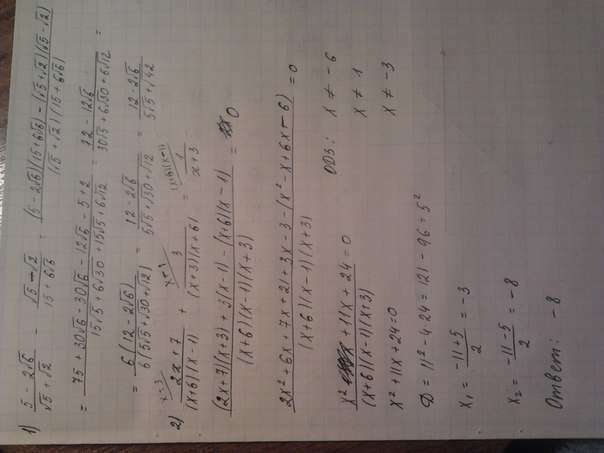 1) (5 - 2√6)/(√5 + √2) - (√5 - √2)/(15 + 6√6) = ((5 - 2√6)(15 + 6√6) - (√5 + √2)(√5 - √2))/((√5 + √2)(15 + 6√6))
= (75 + 30√6 - 30√6 - 12√6 - 5 + 2)/(15√5 + 6√30 + 15√5 + 6√12) = (72 - 12√6)/(30√5 + 6√30 + 6√12) =
= 6(12 - 2√6)/6(5√5 + √30 + √12) = (12 - 2√6)/(5√5 + √30 + √12) = (12 - 2√6)/(5√5 + √42)
2) (2x + 7)/((x+6)(x-1)) + 3/((x+3)(x+6)) = 1/(x+3)
((2x+7)(x+3) + 3(x-1) - (x+6)(x-1))/((x+6)(x-1)(x+3)) = 0
(2x² + 6x + 7x + 21 + 3x - 3 - (x² - x + 6x - 6))/((x+6)(x-1)(x+3)) = 0
(x² + 11x + 24)/((x+6)(x-1)(x+3)) = 0
ОДЗ: x ≠ -6
x ≠ 1
x ≠ -3
x² + 11x + 24 = 0
D = 11² - 4·24 = 121 - 96 = 5²
x₁ = (-11 + 5)/2 = -3
x₂ = (-11 - 5)/2 = -8
Ответ: -8